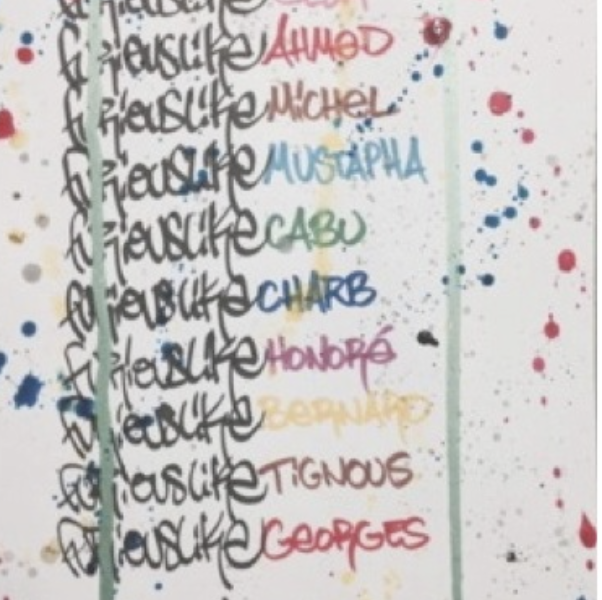 furiouslike
furiouslike AHMED
furiouslike MiCHEL
furiouslike MUSTAPHA
furiouslike CABU
furiouslike CHARB
furiouslike HONORé
furiouslike BERNARD
furiouslike TiGNOUS
furiouslike GEORGES